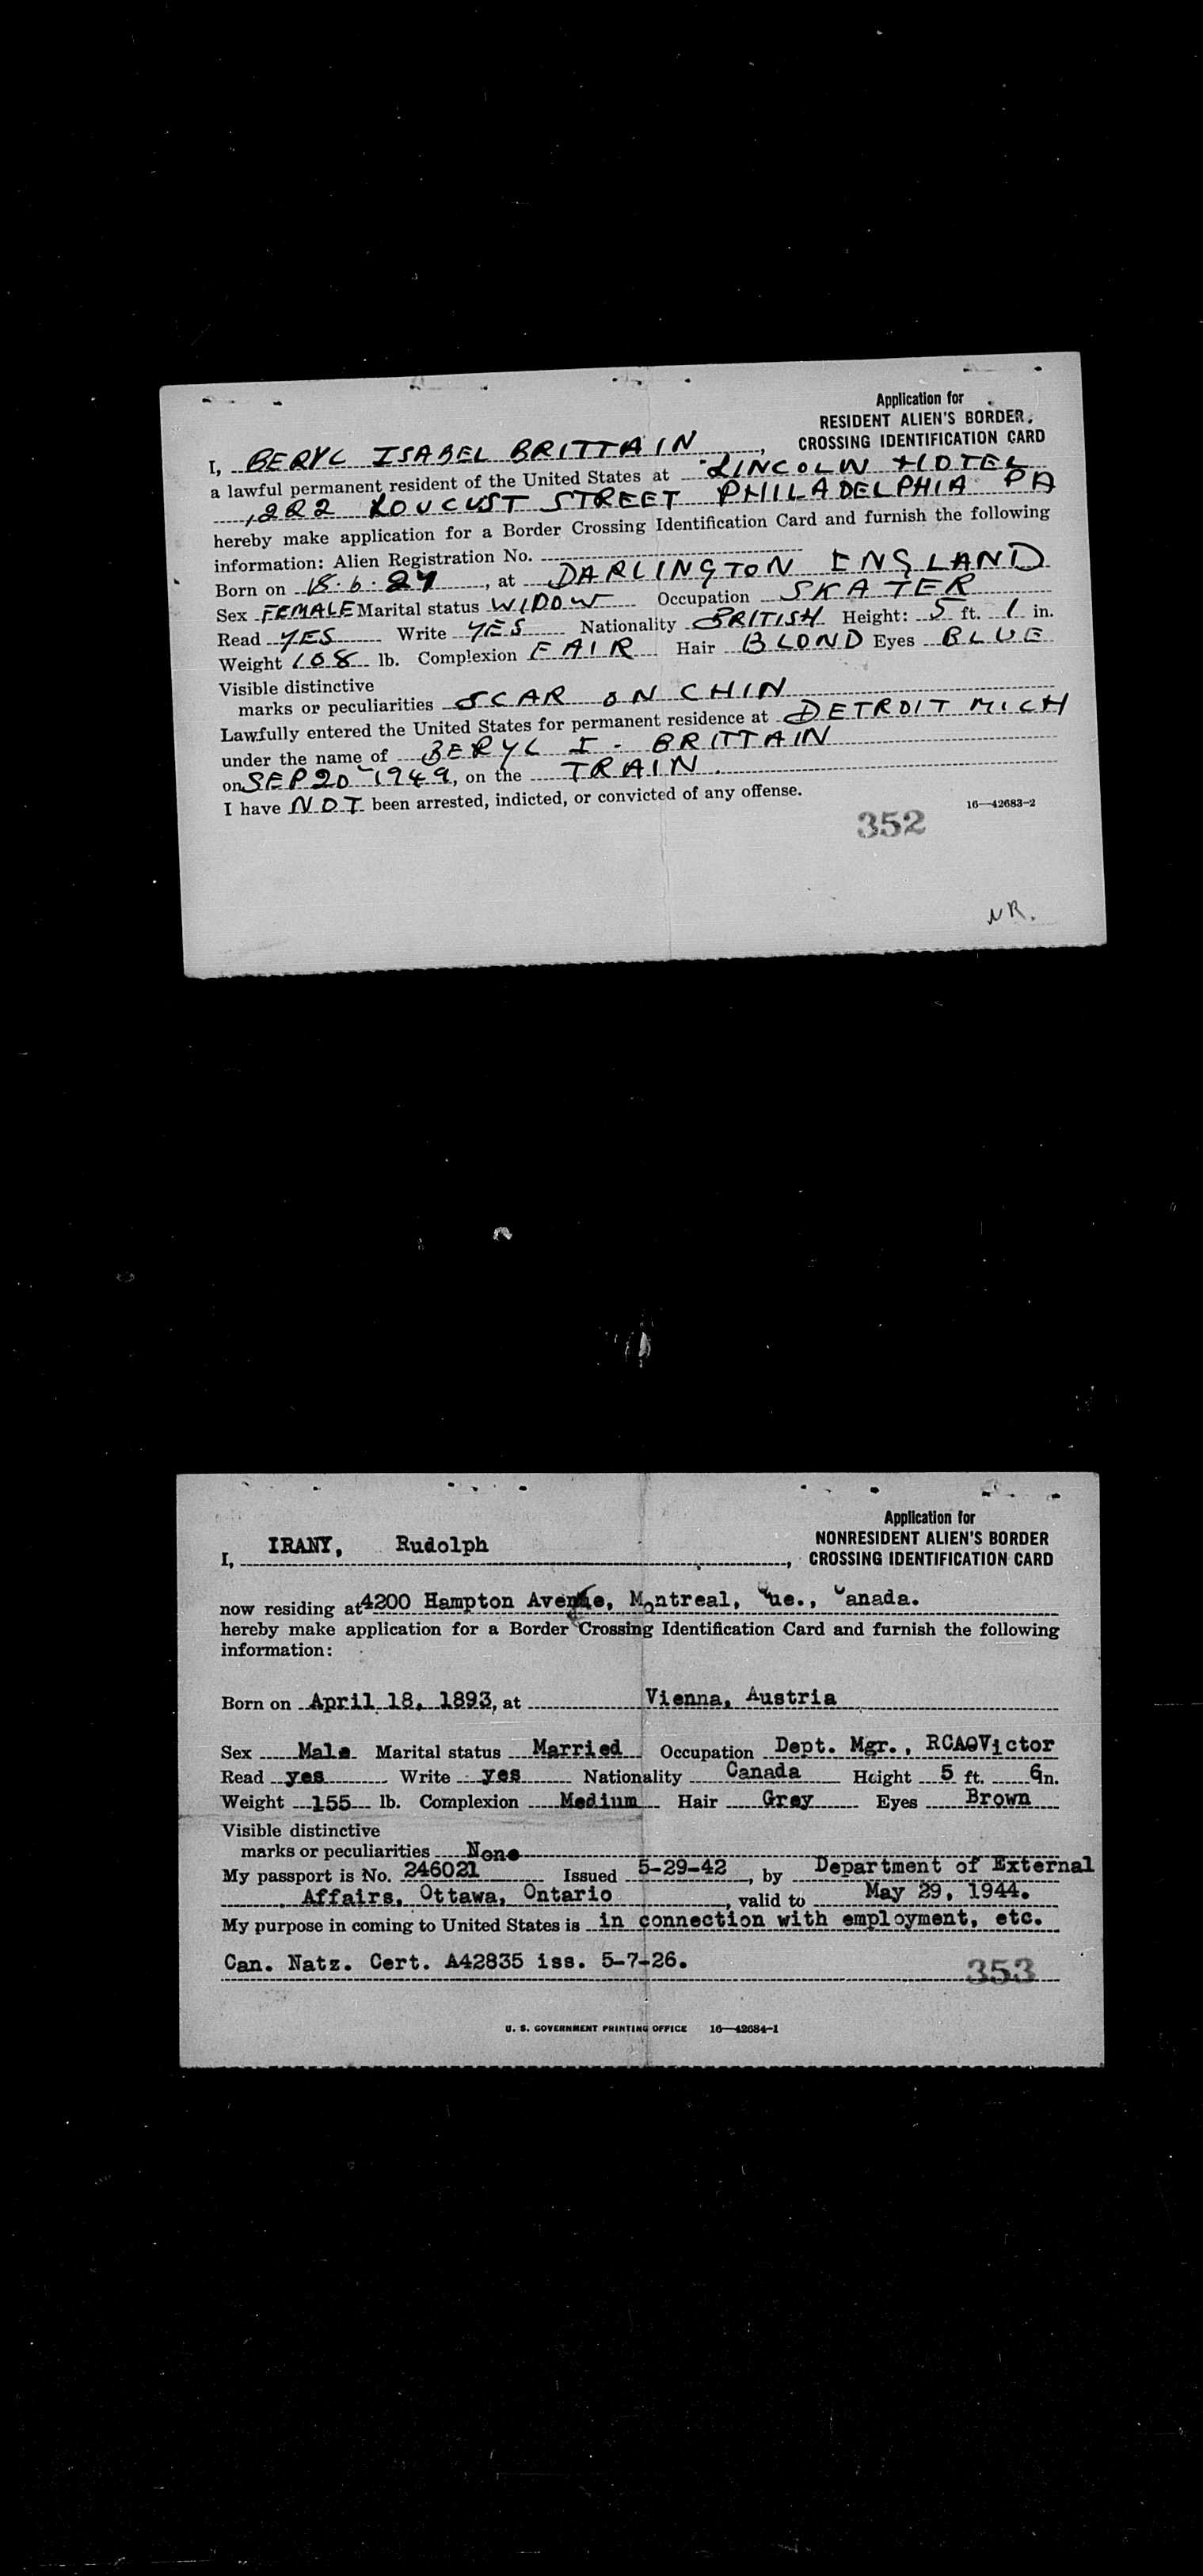 Application for
RESIDENT ALIEN'S BORDER
CROSSING IDENTIFICATION CARD
I, BERYL ISABEL BRITTAIN,
a lawful permanent resident of the United States at LINCOLN HOTEL
1222 LOUCUST STREET PHILADELPHIA PA
hereby make application for a Border Crossing Identification Card and furnish the following
information: Alien Registration No.
Born on 18.6.27, at DARLINGTON ENGLAND
Sex FEMALE Marital status WIDOW Occupation SKATER
Read YES Write YES Nationality BRITISH Height: 5 ft. 1 in.
Weight 108 lb. Complexion FAIR Hair BLOND Eyes BLUE
Visible distinctive
marks or peculiarities SCAR ON CHIN
Lawfully entered the United States for permanent residence at DETROIT MICH
under the name of BERYL I. BRITTAIN
on SEP 20 1949, on the TRAIN.
I have NOT been arrested, indicted, or convicted of any offense.
16—42683-2
352
NR.
Application for
NONRESIDENT ALIEN'S BORDER
CROSSING IDENTIFICATION CARD
I, IRANY, Rudolph,
now residing at 4200 Hampton Avenue, Montreal, Que., Canada.
hereby make application for a Border Crossing Identification Card and furnish the following
information:
Born on April 18, 1893, at Vienna, Austria
Sex Male Marital status Married Occupation Dept. Mgr., RCAOVictor
Read yes Write yes Nationality Canada Height 5 ft. 6n.
Weight 155 lb. Complexion Medium Hair Grey Eyes Brown
Visible distinctive
marks or peculiarities None
My passport is No. 246021 Issued 5-29-42, by Department of External
Affairs, Ottawa, Ontario, valid to May 29, 1944.
My purpose in coming to United States is in connection with employment, etc.
Can. Natz. Cert. A42835 iss. 5-7-26.
353
U. S. GOVERNMENT PRINTING OFFICE 16—42684-1